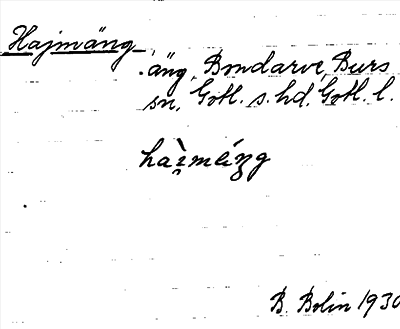 Hajmäng
äng, Bondarve, Burs
sn, Gotl. s. hd, Gotl. l.
B. Bolin 1930